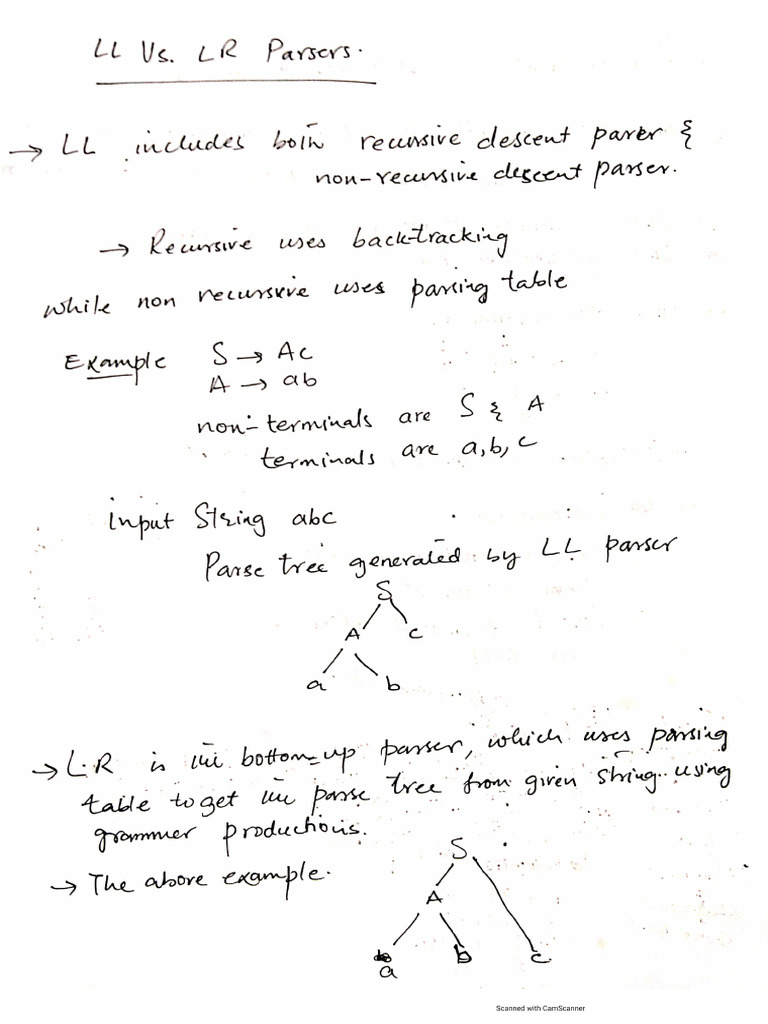 LL Vs. LR Parsers.
→ LL includes both recursive descent parser &
non-recursive descent parser.
→ Recursive uses back-tracking
while non recursive uses parsing table
Example S → Ac
A → ab
non-terminals are S & A
terminals are a, b, c
input String abc
Parse tree generated by LL parser
S
A c
a b
→ L.R is the bottom-up parser, which uses parsing
table to get the parse tree from given string using
grammer productions.
→ The above example.
S
A
a b c
Scanned with CamScanner